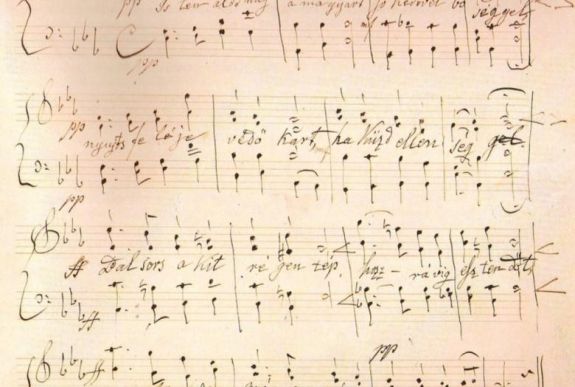 pp Is ten áldd meg a magyart jó kedvvel bő seggel
pp
pp nyujts fe léje védő kart, ha küzd ellen ség gel.
pp
ff Bal sors a kit re gen tép, hoz - rá víg esz ten dőt,
ff
pp
ff